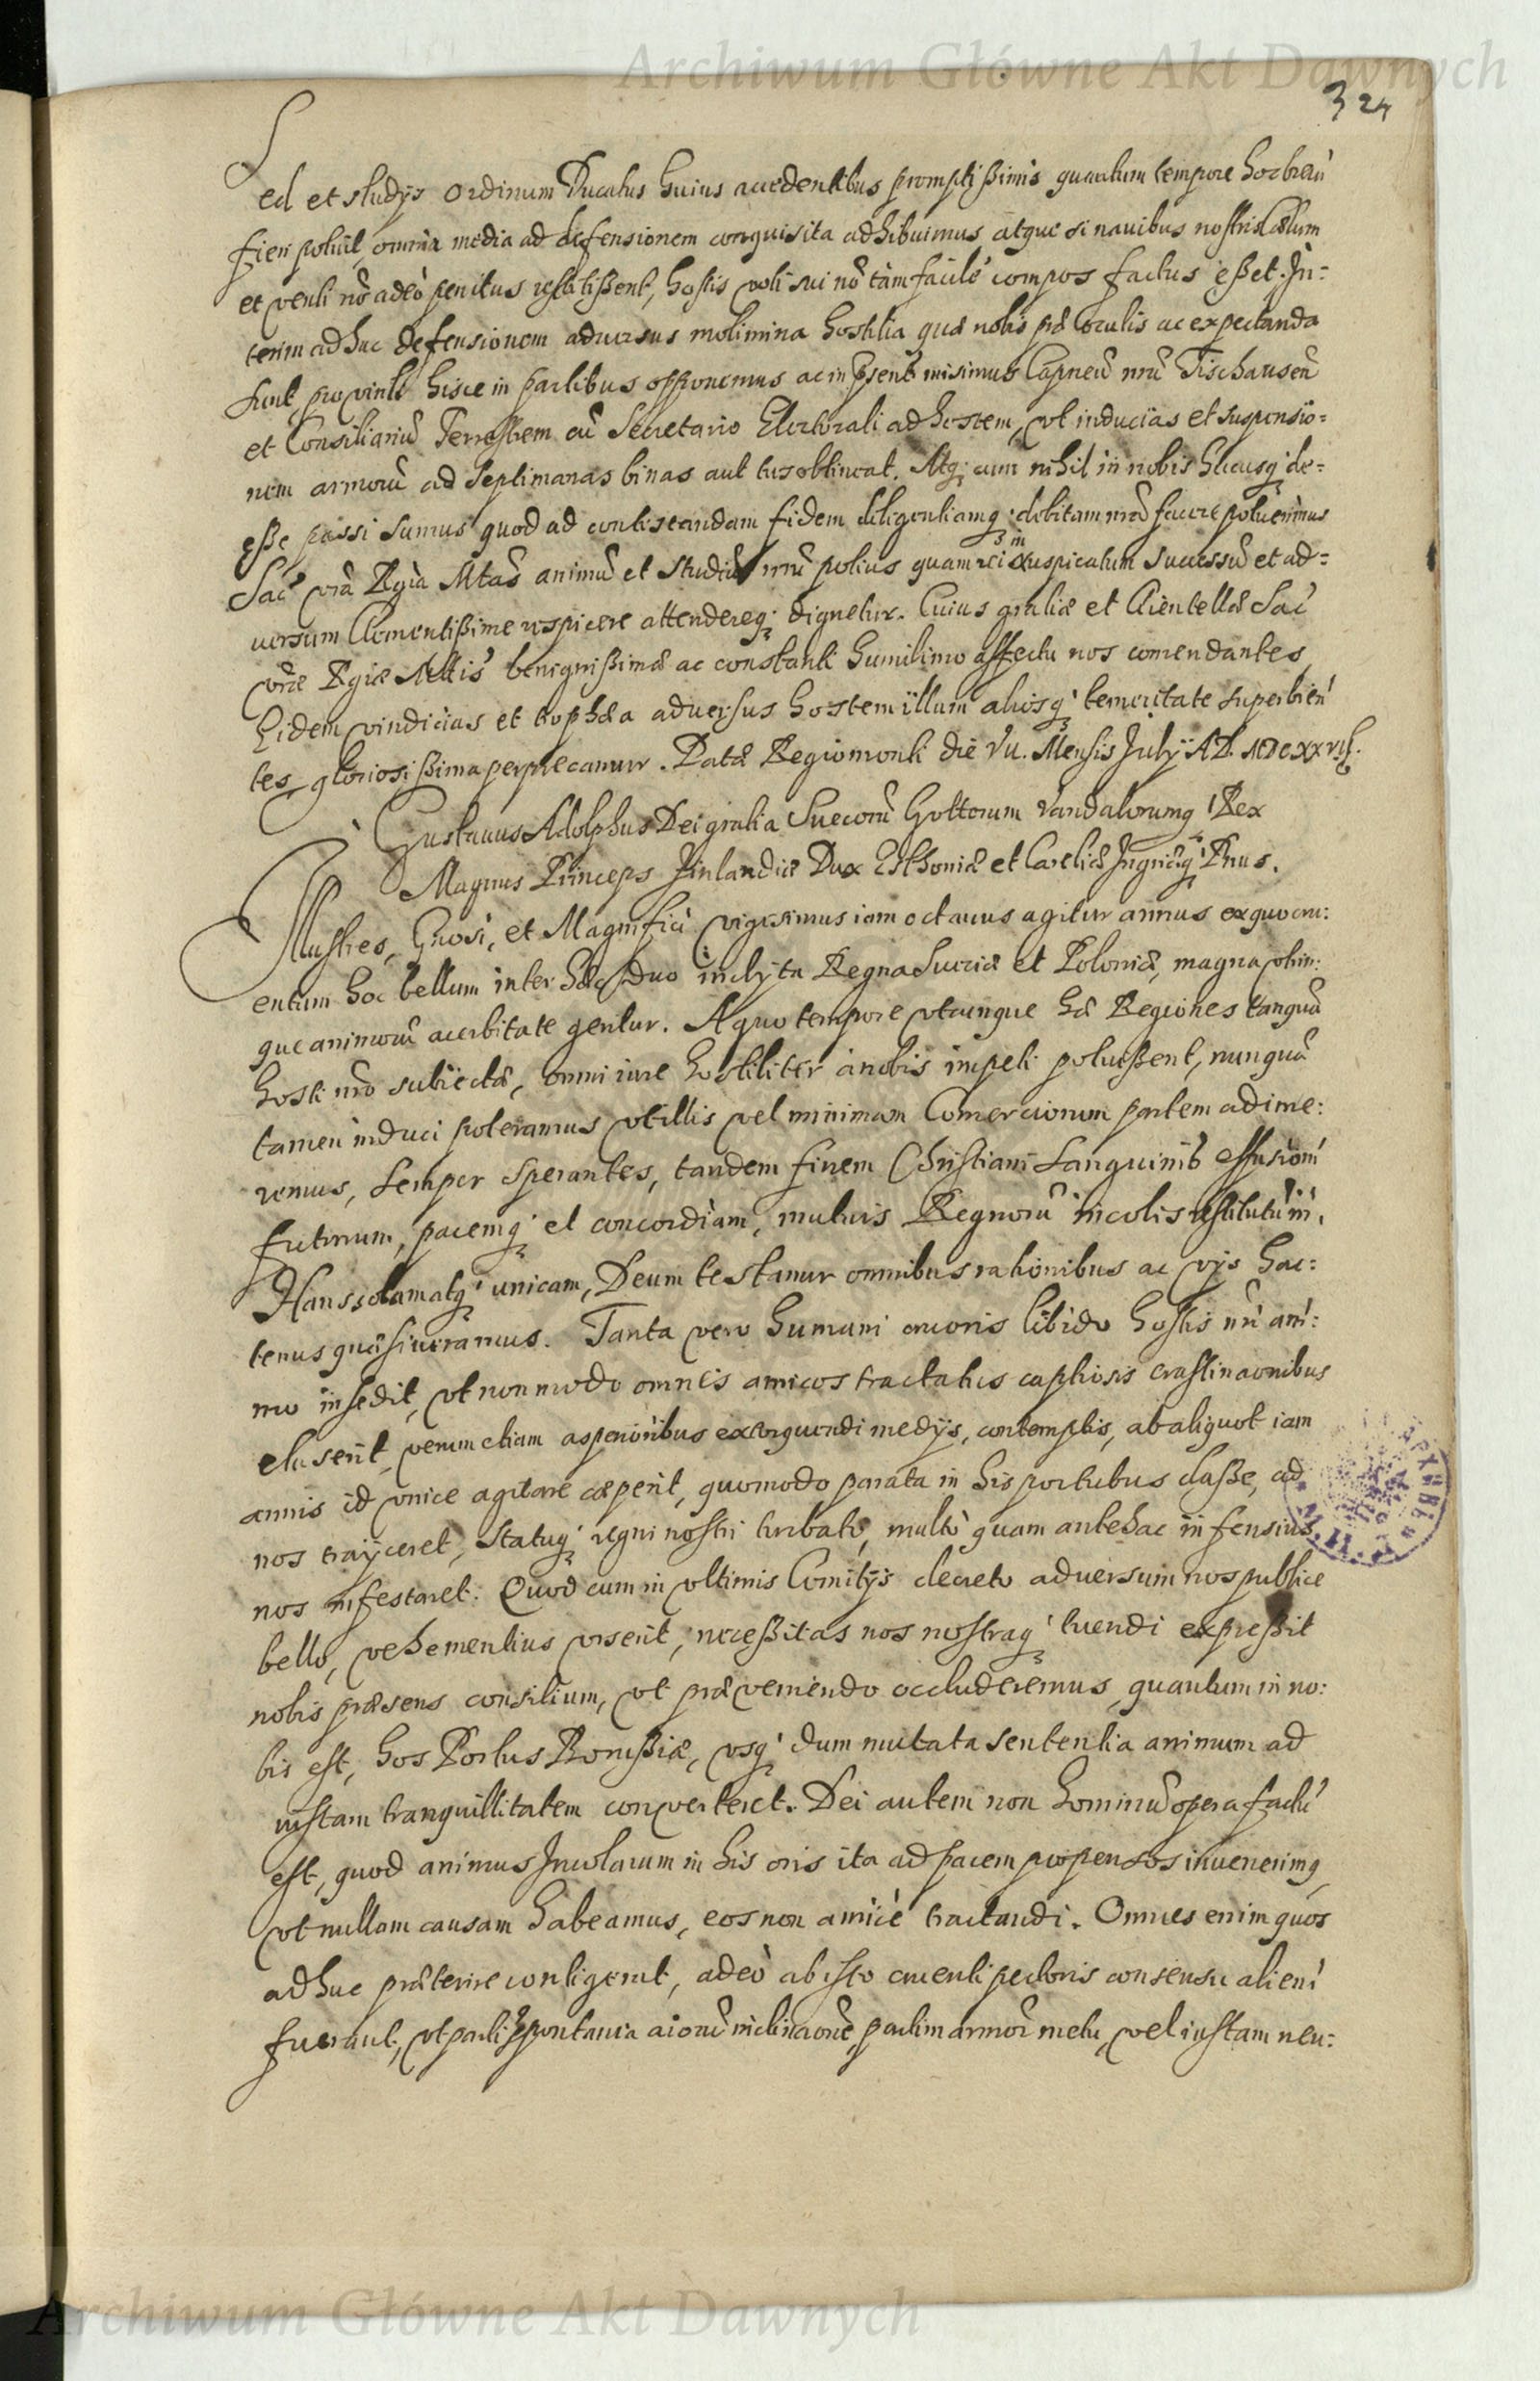 Archiwum Główne Akt Dawnych
324
Sed et studijs Ordinum Ducatus huius accedentibus promptißimis quantum tempore hoc brevi
fieri potuit, omnia media ad defensionem conquisita adhibuimus, atque si nauibus nostris Cælum
et venti nõ adeò penitus restitißent, hostis voti sui nõ tàm facilè compos factus eßet. In=
terim adhuc defensionem adversus molimina hostilia quæ nobis præ oculis ac expectanda
sunt, pro virili hisce in partibus opponemus ac in p̃senti misimus Capneũ nrũ Fischausen̄
et Consiliariũ Terrestrem cũ Secretario Electorali ad hostem, vt inducias et suspensio=
nem armorũ ad Septimanas binas aut tres obtineat. Atq; cum nihil in nobis hucusq; de=
eße paßi sumus quod ad contestandam fidem diligentiamq; debitam nrã facere potuerimus
Sac̃ vrã Rgia Mtas animũ et studiũ nrũ potius quam rei in auspicatum successũ et ad=
versum Clementißime respicere attendereq; dignetur. Cuius gratiæ et Clientellæ Sac̃
vræ Rgiæ Mttis benignißimæ ac constanti humilimo affectu nos comendantes,
Eidem vindicias et trophæa adversus hostem illum aliosq; temeritate superbien
tes gloriosißima perprecamur. Datæ Regiomonti die VII. Mensis Julij A D. MDCXXVI.
Gustauus Adolphus Dei gratia Suecorũ Gottorum Vandalorumq; Rex
Magnus Princeps Finlandiæ Dux Esthoniæ et Careliæ Ingriæq; Dnus.
Illustres, Gnosi, et Magnifici vigesimus iam octauus agitur annus ex quo cru:
entum hoc bellum inter hæc duo inclyta Regna Sueciæ et Poloniæ, magna vtrin:
que animorũ acerbitate geritur. A quo tempore vtcunque hæ Regiones tanquã
hosti nrõ subiectæ, omni iure hostiliter à nobis impeti potuißent, nunquã
tamen induci poteramus vt illis vel minimam Comerciorum partem adime:
remus, semper sperantes, tandem finem Christiani Sanguinis effusioni
futurum, pacemq; et concordiam, mutuis Regnorũ incolis restitutũ iri.
Hanc solam atq; unicam, Deum testamur omnibus rationibus ac vijs hac:
tenus quæsiueramus. Tanta vero humani cruoris libido hostis nri ani:
mo insedit, vt non modo omneis amicos tractatus captiosis crastinaonibus
eluserit, verum etiam asperioribus extorquendi medijs, contemptis, ab aliquot iam
annis id vnice agitare cæperit, quomodo parata in his portubus claße, ad
nos traijceret, Statuq; regni nostri turbato, multò quam antehac infensius
nos infestaret. Quod cum in vltimis Comitijs decreto adversum nos publice
bello, vehementius vrserit, neceßitas nos nostraq; tuendi expreßit
nobis præsens consilium, vt præveniendo occluderemus, quantum in no:
bis est, hos Portus Borußiæ, vsq; dum mutata sententia animum ad
iustam tranquillitatem converteret. Dei autem non hominũ opera factũ
est, quod animus Incolarum in his oris ita ad pacem propensos inuenerimq,
vt nullam causam habeamus, eos non amicè tractandi. Omnes enim quos
adhuc præterire contigerat, adeò ab isto cruenti pectoris consensu alieni
fuerant, vt parti spontanea aiorũ inclinaonẽ, partim armorũ metu, vel iustam neu:
Archiwum Główne Akt Dawnych